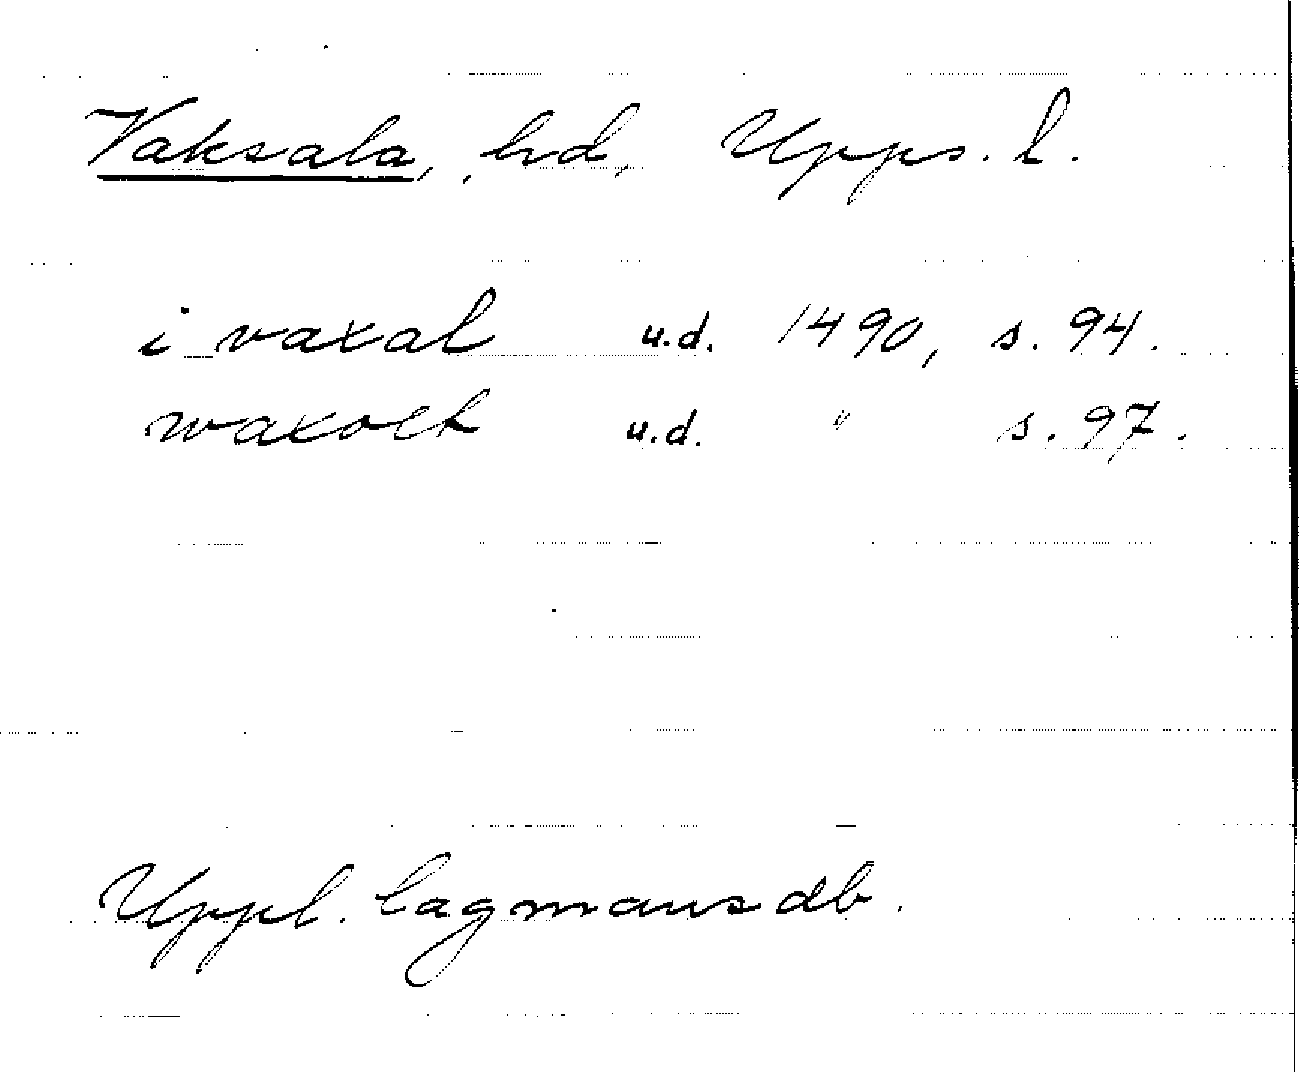 Vaksala, hd, Upps. l.
i vaxal u.d. 1490, s. 94.
waxolt u.d. " s. 97.
Uppl. lagmansdb.